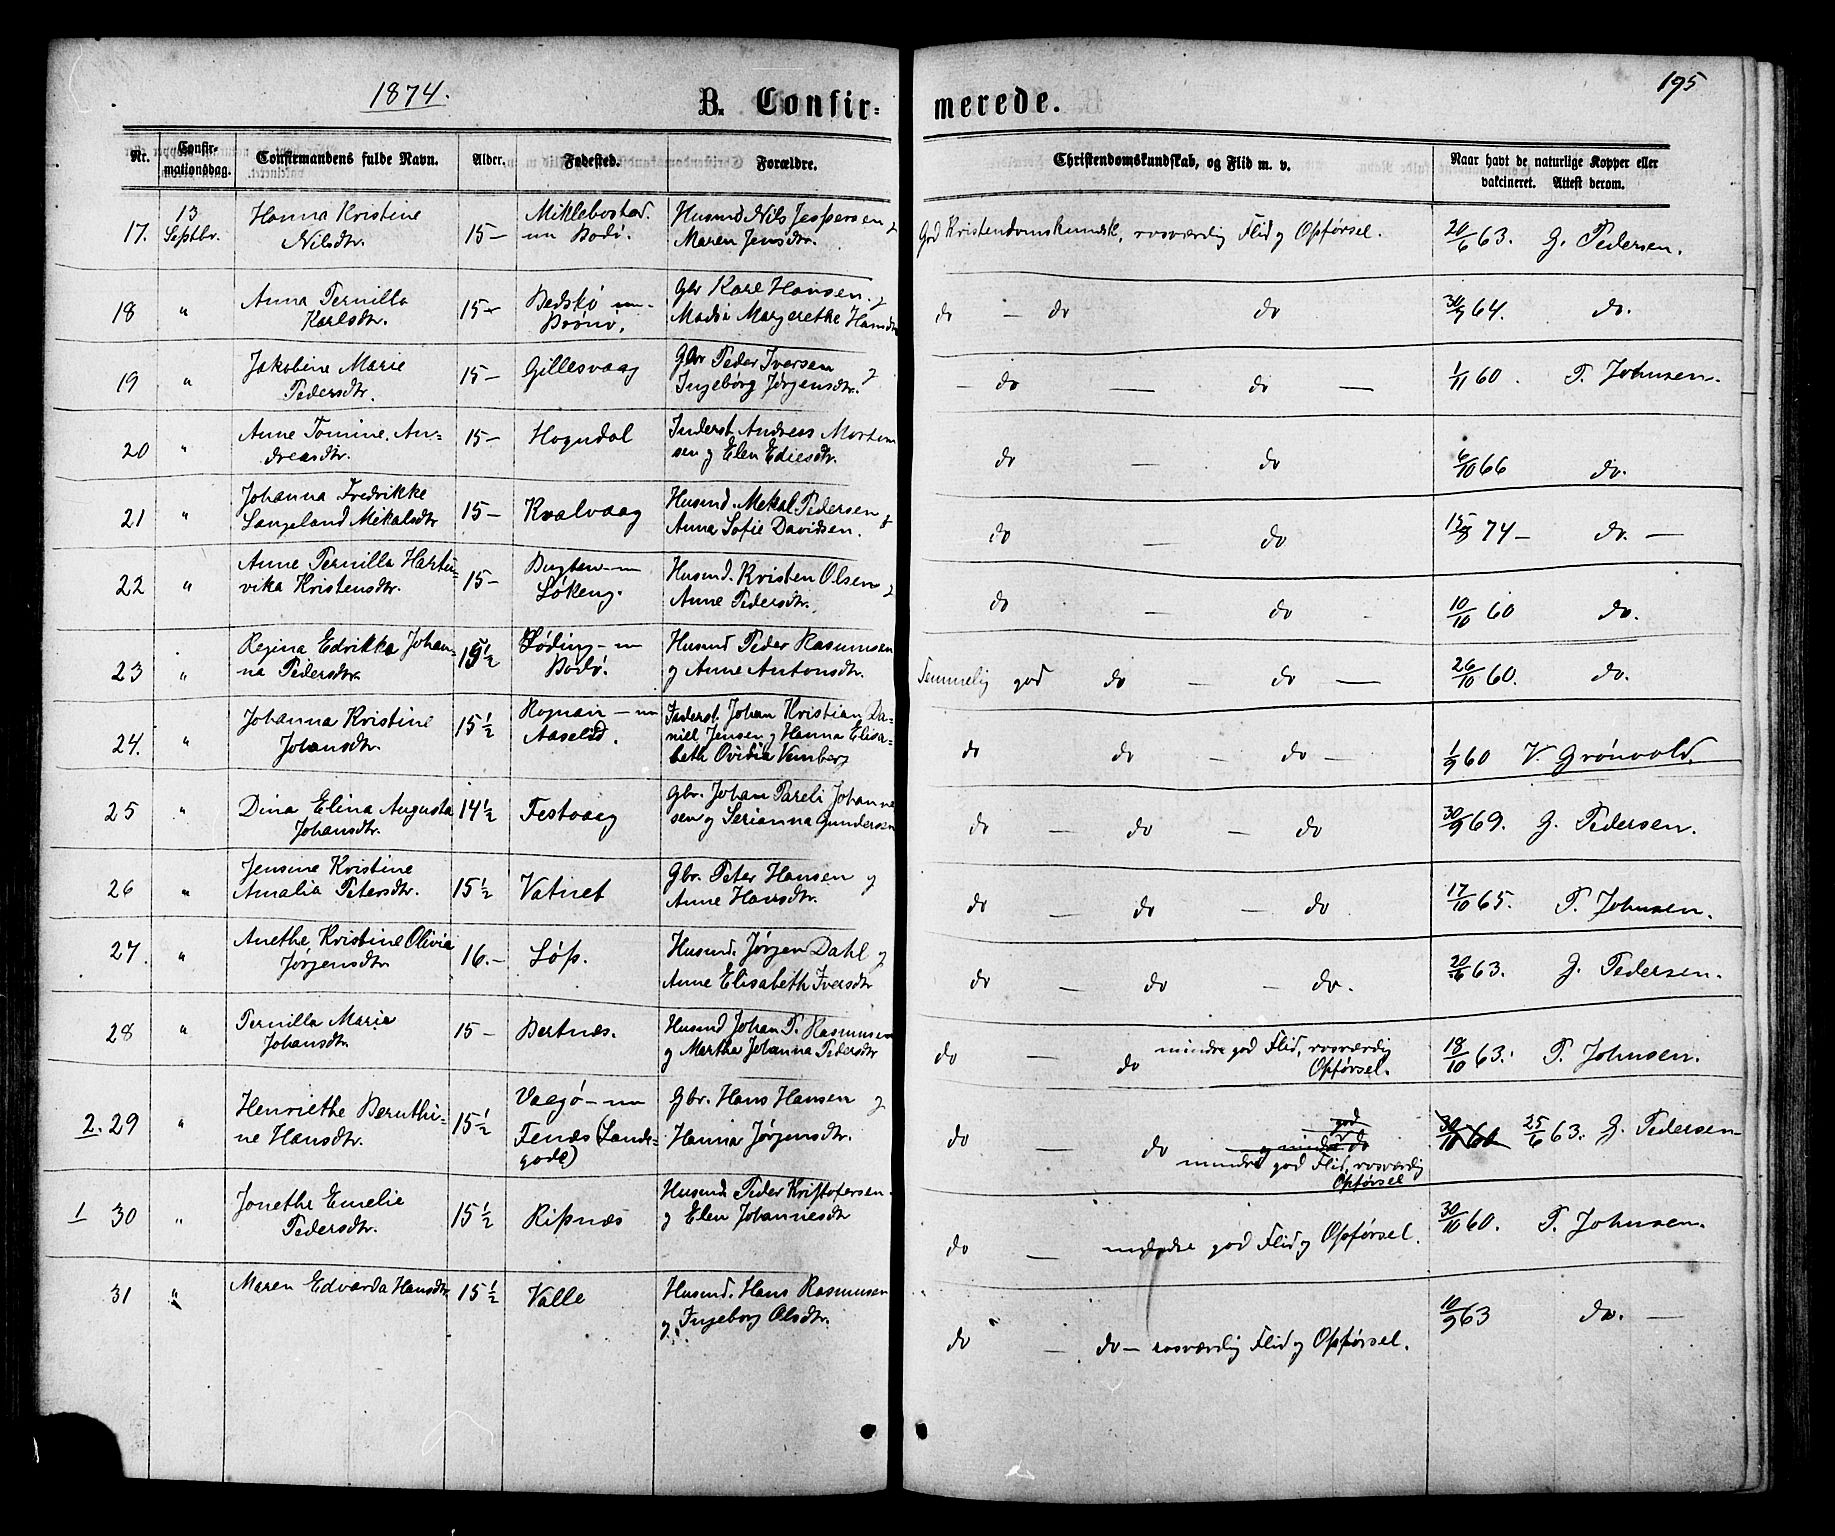 1874.
195
B. Confir-
merede.
Nr.
Confir-
mationsdag.
Confirmandens fulde Navn.
Alder.
Fødested.
Forældre.
Christendomskundskab, og Flid m. v.
Naar havt de naturlige Kopper eller
vakcineret. Attest derom.
17. 13 Septbr. Hanna Kristine
Nilsdtr. 15- Miklebostad
Bodø. Husmd Nils Jespersen og
Maren Jensdtr. God Kristendomskundsk, rosværdig Flid og Opførsel. 20/6 63. G. Pedersen.
18 " Anna Pernilla
Karlsdtr. 15- Gbr Karl Hansen og
Madsa Margrethe Hansdtr do - do do 30/9 64. do.
19 " Jakobine Marie
Pedersdtr. 15- Gillesvaag Gbr Peder Iversen og
Ingeborg Jørgensdtr. - do - do - 1/11 60. P. Johnsen.
20 " Anne Tomine An-
dreasdtr. 15- Hogndal Inderst Andreas Morten
sen og Elen Ediesdtr. do - do 6/10 66 do.
21 " Johanna Fredrikke
Langeland Mikalsdtr 15- Kvalvaag Husmd. Mekal Pedersen og
Anna Sofie Davidsen. do - do 15/8 74- do. -
22 " Anne Pernilla Hartu-
vika Kristensdtr. 15- Bugten
Løkeng. Husmd. Kristen Olsen og
Anne Pedersdtr. do - do 10/10 60 do.
23 " Regina Edrikka Johan-
na Pedersdtr. 15 1/2 Løding
Bodø. Husmd Peder Rasmusen
og Anne Antonsdtr. Temmelig god do - do - 26/10 60. do.
24. " Johanna Kristine
Johansdtr. 15 1/2 Rognan
Aaselid. Inderst. Johan Kristian Da-
niel Jensen og Hanna Elisa-
beth Ovidia Vemberg do do - do - 1/9 60 V. Grönvold.
25 " Dina Elina Augusta
Johansdtr. 14 1/2 Festvaag Gbr. Johan Pareli Johanne
sen og Serianna Gundersen do - do - do 30/9 69. G. Pedersen.
26 " Jensine Kristine
Amalia Petersdtr. 15 1/2 Vatnet Gbr. Peter Hansen og
Anne Hansdtr. do - do - do 17/10 65. P. Johnsen.
27. " Anethe Kristine Olivia
Jørgensdtr 16.- Løp. Husmd. Jørgen Dahl og
Anne Elisabeth Iversdtr do - do - do. 20/6 63. G. Pedersen.
28 " Pernilla Maria
Johansdtr. 15- Bertnæs. Husmd Johan P. Rasmusen
og Martha Johanna Pedersdtr do - do mindre god Flid, rosværdig
Opførsel. 18/10 63. P. Johnsen.
2. 29 " Henriethe Bernthi-
ne Hansdtr. 15 1/2 Vaagø
Fenæs (Lande-
gode) Gbr. Hans Hansen og
Hanna Jørgensdtr. do - do god
og mindre do
mindre god Flid, rosværdig
Opførsel 30/10 60 25/6 63. G. Pedersen
1 30 " Jonethe Emelie
Pedersdtr. 15 1/2 Ripnæs Husmd. Peder Kristofersen
og Elen Johannesdtr do - mindre god Flid og Opførsel. 30/10 60. P. Johnsen.
31 " Maren Edvarda Hansdtr 15 1/2 Valle Husmd. Hans Rasmusen
og Ingeborg Olsdtr. do - do- rosværdig Flid og Opførsel. 10/9 63 do. -